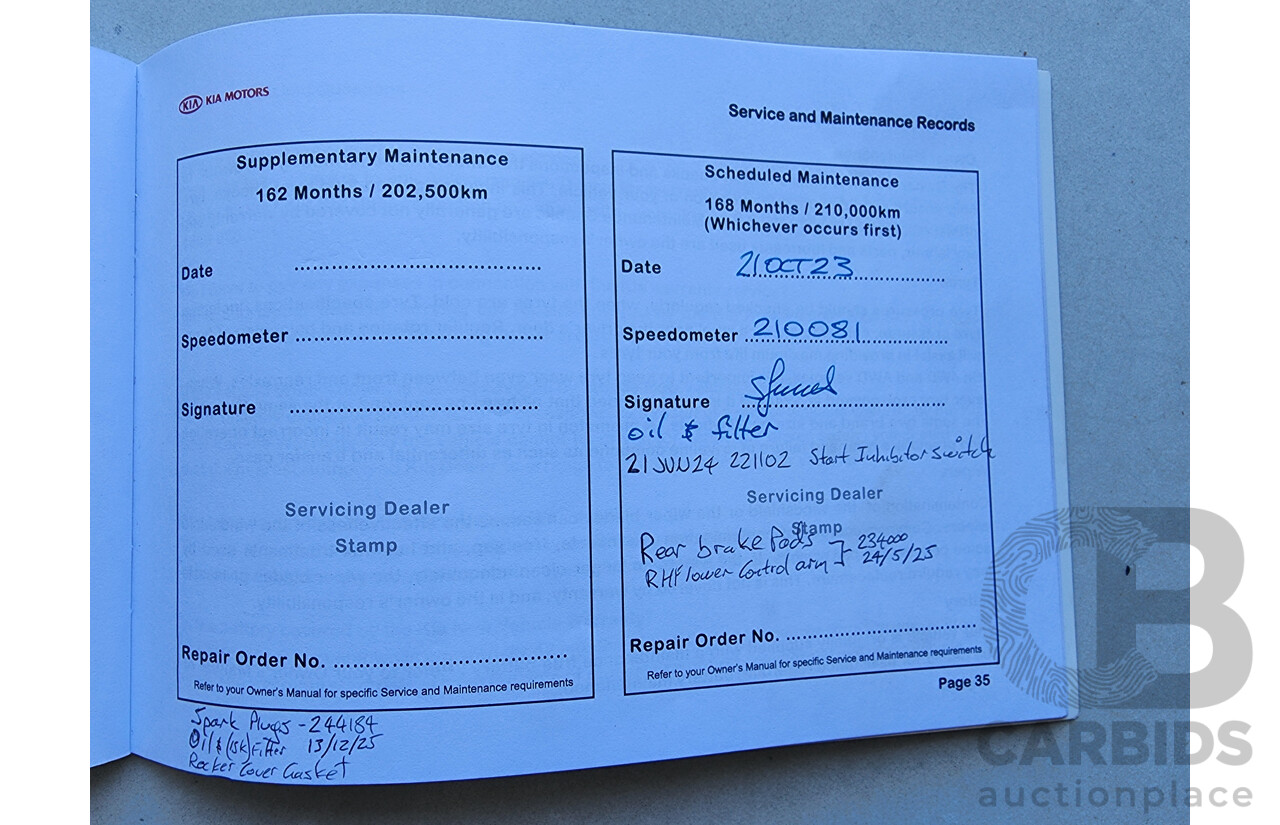 KIA KIA MOTORS
Service and Maintenance Records
Supplementary Maintenance
162 Months / 202,500km
Date ......................................
Speedometer ......................................
Signature ......................................
Servicing Dealer
Stamp
Repair Order No. ....................................
Refer to your Owner's Manual for specific Service and Maintenance requirements
Spark Plugs - 244184
Oil & (15K) Filter 13/12/25
Rocker Cover Gasket
Scheduled Maintenance
168 Months / 210,000km
(Whichever occurs first)
Date 21 OCT 23
Speedometer 210081
Signature
oil & filter
21 JUN 24 221102 Start Inhibitor switch
Servicing Dealer
Stamp
Rear brake Pads } 234000
RHF lower Control arm } 24/5/25
Repair Order No. .............................
Refer to your Owner's Manual for specific Service and Maintenance requirements
Page 35
CB
CARBIDS
auctionplace